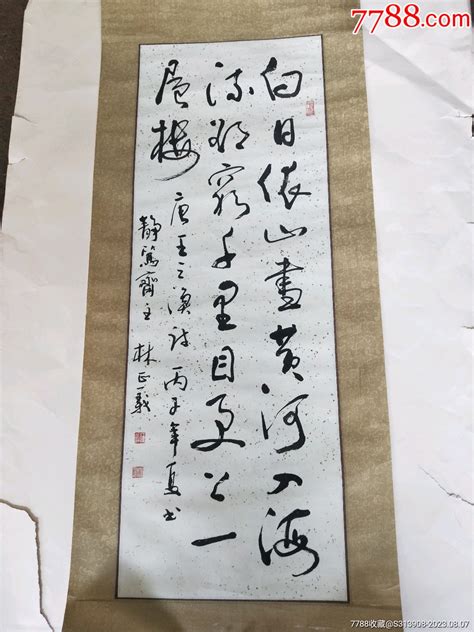 7788.com
白日依山盡黄河入海
流欲窮千里目更上一
層樓
唐王之渙詩丙子年夏书
靜篤齋主 林正義
7788收藏@S313908-2023.08.07